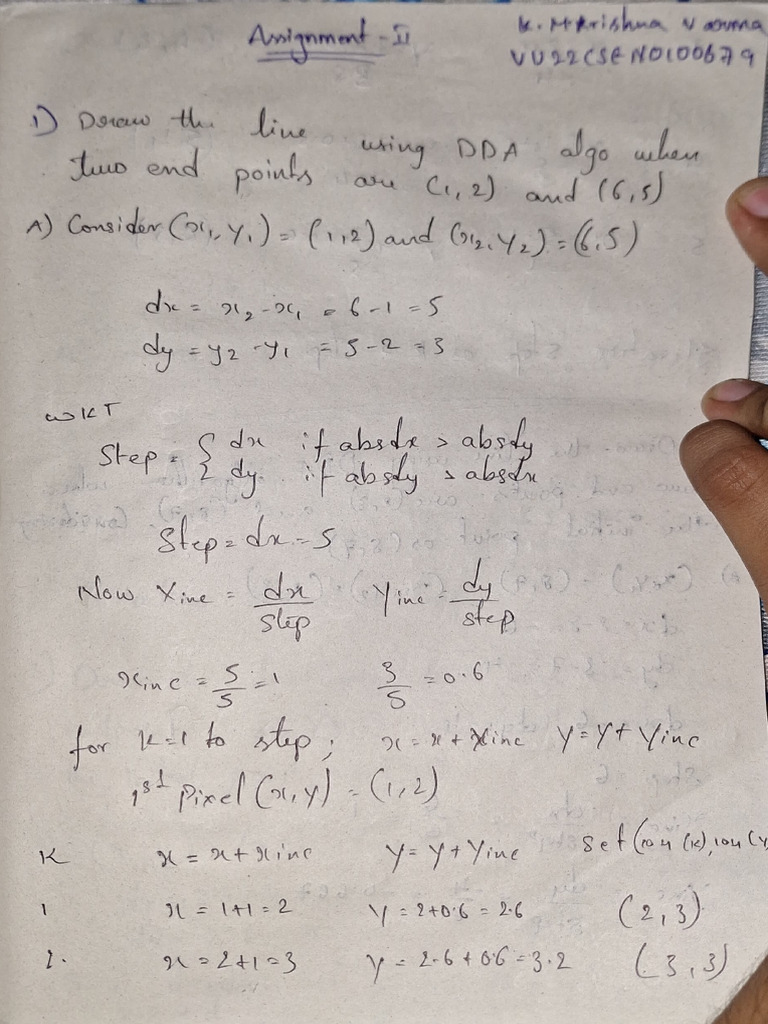 Assignment - II
K. H Krishna Varma
VU22CSEN0100679
1) Draw the line using DDA algo when
two end points are (1, 2) and (6,5)
A) Consider (x1, y1) = (1,2) and (x2, y2) = (6,5)
dx = x2 - x1 = 6 - 1 = 5
dy = y2 - y1 = 5 - 2 = 3
WKT
Step = { dx if absdx > absdy
{ dy if absdy > absdx
Step = dx = 5
Now Xinc = dx/step Yinc = dy/step
xinc = 5/5 = 1 3/5 = 0.6
for k=1 to step; x = x + Xinc Y = Y + Yinc
1st Pixel (x, y) = (1, 2)
K x = x + xinc Y = Y + Yinc Set
1 x = 1+1 = 2 Y = 2+0.6 = 2.6 (2, 3)
2. x = 2+1 = 3 Y = 2.6 + 0.6 = 3.2 (3, 3)